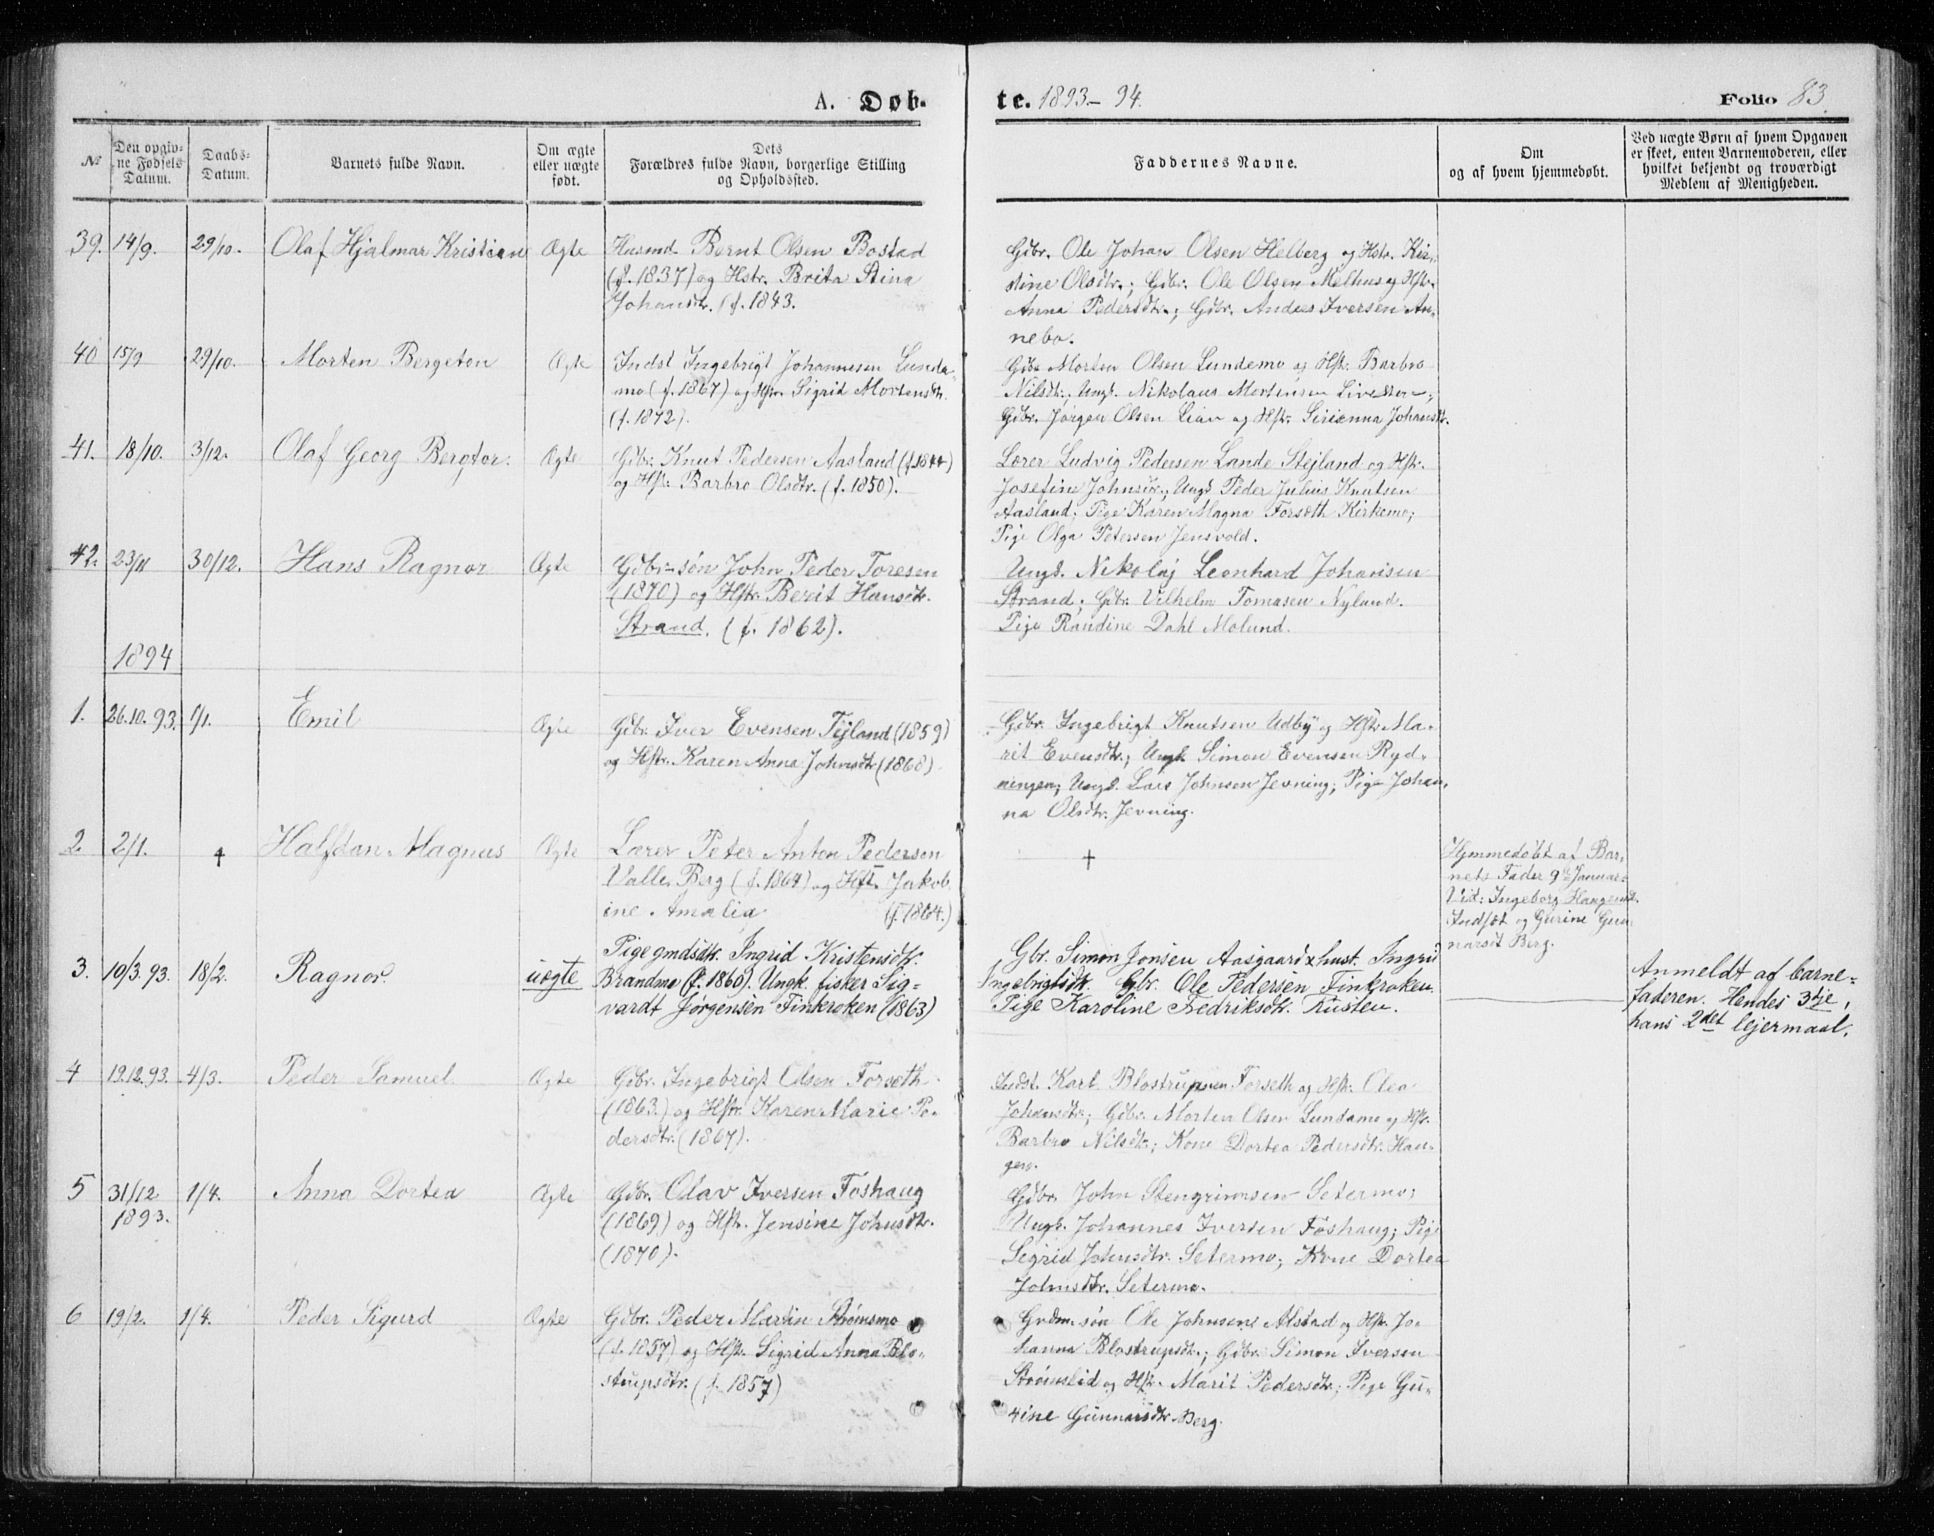 A. Døb-
te. 1893-94.
Folio 83.
№
Den opgiv-
ne Fødsels
Datum.
Daabs-
Datum.
Barnets fulde Navn.
Om ægte
eller uægte
født.
Dets
Forældres fulde Navn, borgerlige Stilling
og Opholdssted.
Faddernes Navne.
Om
og af hvem hjemmedøbt.
Ved uægte Børn af hvem Opgaven
er skeet, enten Barnemoderen, eller
hvilket bekjendt og troværdigt
Medlem af Menigheden.
39. 14/9. 29/10. Olaf Hjalmar Kristian Ægte
Husmd. Bernt Olsen Bostad
(f. 1837) og Hstr. Brita Stina
Johansdt. (f. 1843.
Gdbr. Ole Johan Olsen Helberg og Hstr. Kir-
stine Olsdtr.; Gdbr. Ole Olsen Melhus og Hstr.
Anna Pedersdtr.; Gdbr. Anders Iversen An-
nebo.
40 15/9 29/10. Morten Bergeton Ægte
Indst Ingebrigt Johannesen Lunda-
mo (f. 1867) og Hstr. Sigrid Mortensdt.
(f. 1872).
Gdbr Morten Olsen Lundemo og Hstr. Barbro
Nilsdtr.; Ungk. Nikolaus Mortensen
Gdbr. Jørgen Olsen Lian og Hstr. Sirianna Johansdt.
41. 18/10. 3/12. Olaf Georg Bergtor. Ægte
Gdbr. Knut Pedersen Aasland (f. 1844)
og Hstr. Barbro Olsdtr. (f. 1850).
Lærer Ludvig Pedersen Lande Stejland og Hstr.
Josefine Johnsdr.; Ungk Peder Julius Knutsen
Aasland; Pige Karen Magna Forseth Kirkemo;
Pige Olga Petersen Jensvold.
42. 23/11 30/12. Hans Ragnor Ægte
Gdbr.-søn John Peder Toresen
(1870) og Hstr. Berit Hansdtr.
Strand. (f. 1862).
Ungk. Nikolaj Leonhard Johansen
Strand; Gdbr. Vilhelm Tomasen Nyland.
Pige Randine Dahl Molund.
1894
1. 26.10.93. 1/1. Emil Ægte
Gdbr. Iver Evensen Fejland (1859)
og Hstr. Karen Anna Johnsdtr (1868)
Gdbr. Ingebrigt Knutsen Udby og Hstr. Ma-
rit Evensdtr.; Ungk Simon Evensen Ryd-
ningen; Ungk. Lars Johnsen Jevning; Pige Johan-
na Olsdtr. Jevning.
2. 2/1. + Halfdan Magnus Ægte
Lærer Peter Anton Pedersen
Valle Berg (f. 1864) og Hstr. Jakob
ine Amalia (f. 1864.)
+
Hjemmedøbt af Bar-
nets Fader 9de Januar.
Vid: Ingeborg Haugen
Indset og Gurine Gun
narsdt Berg.
3. 10/3.93. 18/2. Ragnor. uægte
Pige gmdsdtr. Ingrid Kristensdtr.
Brandmo (f. 1860). Ungk. fisker Sig-
vardt Jørgensen Finkroken (1863)
Gbr. Simon Jonsen Aasgaard & hust. Ingrid
Ingebrigtsdtr. Gbr. Ole Pedersen Finkroken.
Pige Karoline Fredriksdtr. Kusten.
Anmeldt af barne-
faderen. Hendes 3tje,
hans 2det lejermaal.
4 19.12.93. 4/3. Peder Samuel Ægte
Gdbr. Ingebrigt Olsen Forseth
(1863.) og Hstr. Karen Marie Pe-
dersdtr. (1867).
Indst. Karl Blostrupsen Forseth og Hstr. Olea
Johansdtr.; Gdbr. Morten Olsen Lundamo og Hstr.
Barbro Nilsdtr.; Kone Dortea Pedersdtr. Hau-
gen.
5 31/12 1893. 1/4. Anna Dortea Ægte
Gdbr. Olav Iversen Foshaug
(1869) og Hstr. Jensine Johnsdtr.
(1870).
Gdbr. John Stengrimsen Setermo;
Ungk. Johannes Iversen Foshaug; Pige
Sigrid Johnsdtr. Setermo; Kone Dortea
Johnsdtr. Setermo.
6 19/2. 1/4. Peder Sigurd Ægte
Gdbr. Peder Martin Strømsmo
(f. 1857) og Hstr. Sigrid Anna Blo-
strupsdtr. (f. 1857)
Grdm. søn Ole Johnsen Alstad og Hstr. Jo-
hanna Blostrupsdtr.; Gdbr. Simon Iversen
Strømslid og Hstr. Marit Pedersdtr.; Pige Gu-
rine Gunnarsdtr Berg.